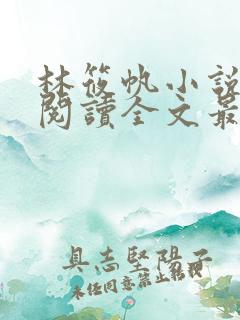 林筱帆小說
閱讀全文最
具志堅陽子
未任同意禁止轉載